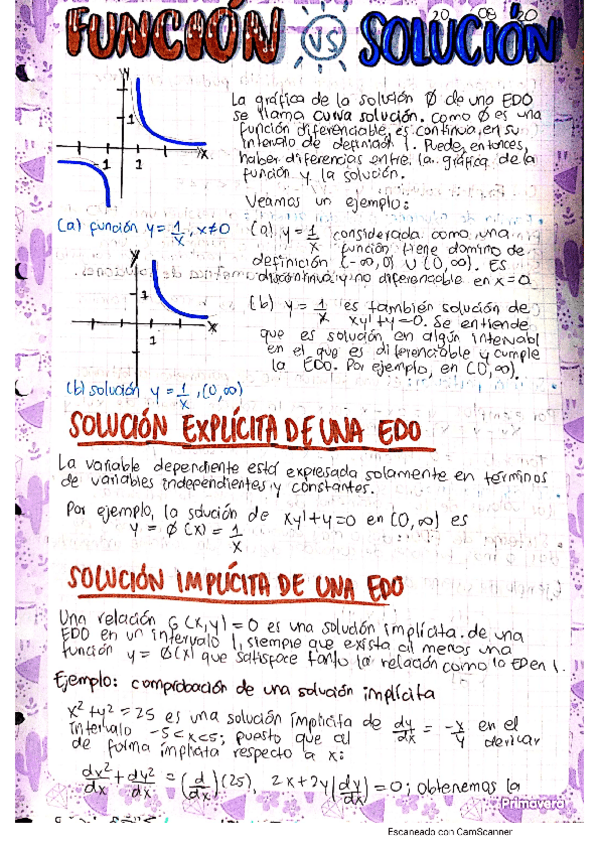 20 08 20
FUNCIÓN VS SOLUCIÓN
La gráfica de la solución Ø de una EDO
se llama curva solución. Como Ø es una
función diferenciable, es continua, en su
intervalo de definición I. Puede, entonces,
haber diferencias entre la gráfica de la
función y la solución.
Veamos un ejemplo:
y
1
-1 1
x
(a) función y = 1/x, x≠0
(a) y = 1/x considerada como una
función tiene domino de
definición (-∞, 0) ∪ (0, ∞). Es
discontinua y no diferenciable en x = 0.
y
1
1
x
(b) solución y = 1/x, (0, ∞)
(b) y = 1/x es también solución de
xy'+y=0. Se entiende
que es solución en algún intervalo
en el que es diferenciable y cumple
la EDO. Por ejemplo, en (0, ∞).
SOLUCIÓN EXPLÍCITA DE UNA EDO
La variable dependiente está expresada solamente en términos
de variables independientes y constantes.
Por ejemplo, la solución de xy'+y=0 en (0, ∞) es
y = Ø(x) = 1/x
SOLUCIÓN IMPLÍCITA DE UNA EDO
Una relación G(x,y)=0 es una solución implícita de una
EDO en un intervalo I, siempre que exista al menos una
función y = Ø(x) que satisface tanto la relación como la ED en I.
Ejemplo: comprobación de una solución implícita
x²+y²=25 es una solución implícita de dy/dx = -x/y en el
intervalo -5<x<5; puesto que al derivar
de forma implícita respecto a x:
dx²/dx + dy²/dx = (d/dx)(25), 2x+2y(dy/dx)=0; obtenemos la
Primavera
Escaneado con CamScanner